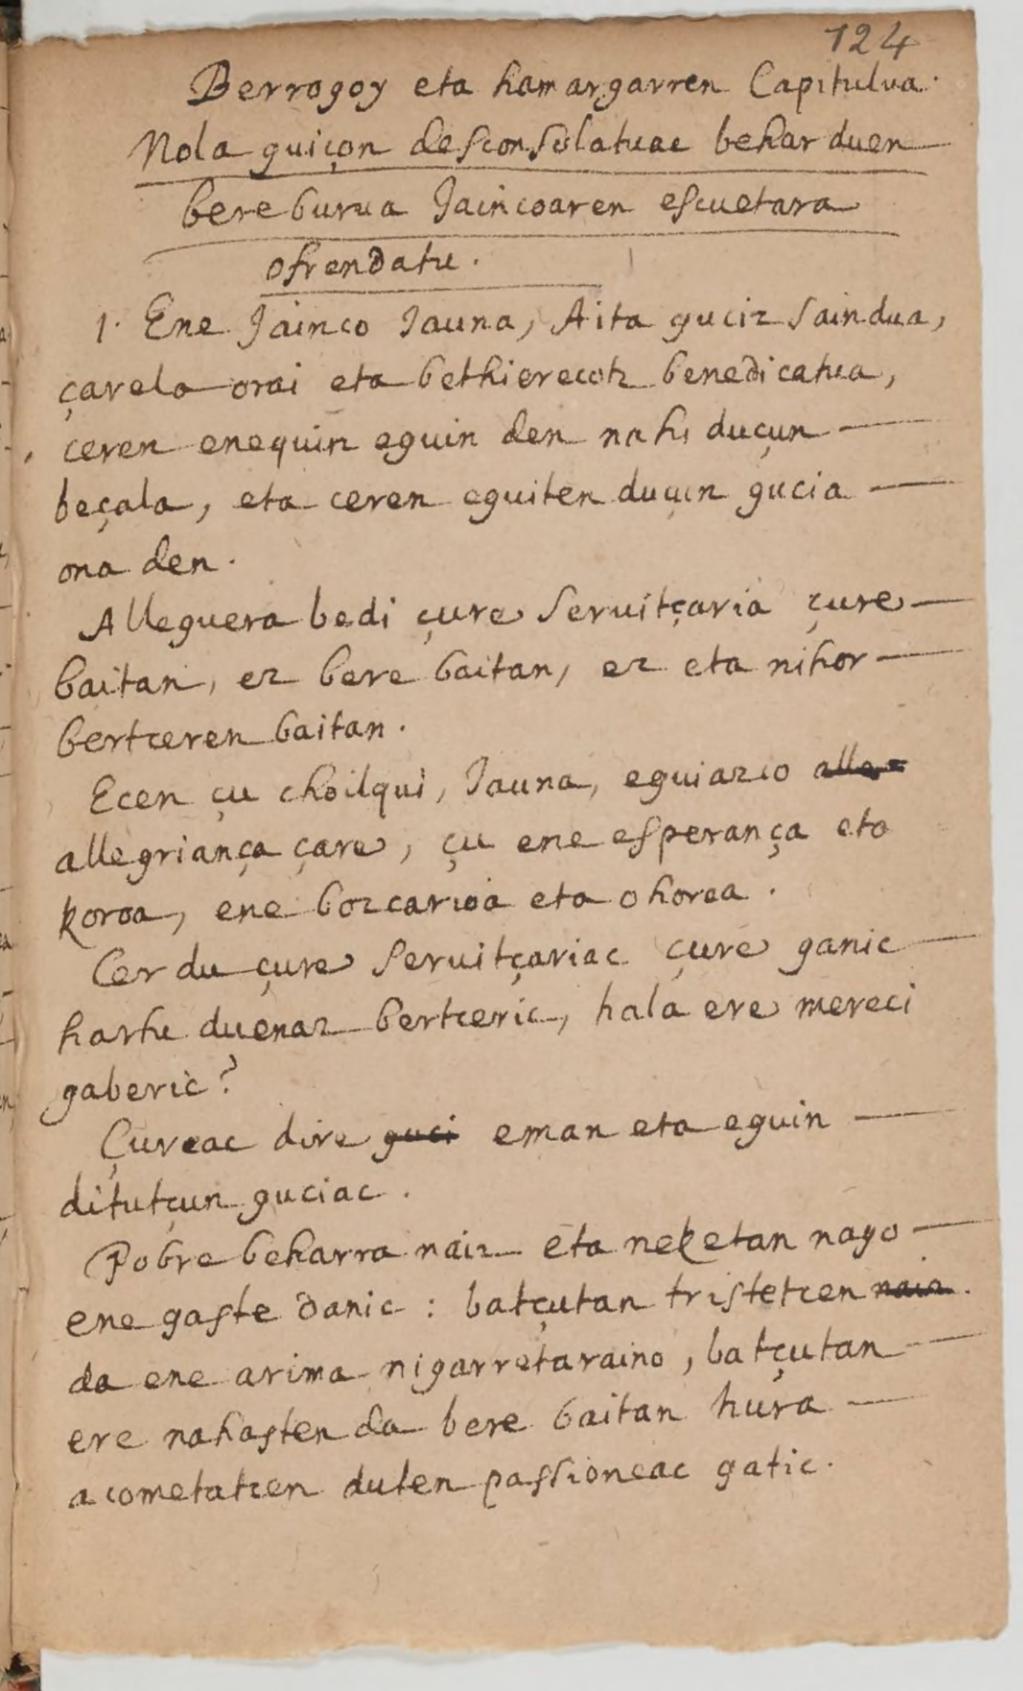 124
Berrogoy eta hamargarren Capitulua.
Nola guiçon desconsolatuac behar duen
bere burua Jaincoaren escuetara
ofrendatu.
1. Ene Jainco Jauna, Aita guciz saindua,
çarela orai eta bethierecotz benedicatua,
ceren enequin eguin den nahi duçun
beçala, eta ceren eguiten duçun gucia
ona den.
Alleguera bedi çure seruitçaria çure
baitan, ez bere baitan, ez eta nihor
bertceren baitan.
Ecen çu choilqui, Jauna, eguiazco alle=
allegriança çare, çu ene esperança eta
koroa, ene bozcarioa eta ohorea.
Cer du çure seruitçariac çure ganic
hartu duenaz bertceric, hala ere mereci
gaberic?
Çureac dire guci eman eta eguin
ditutçun guciac.
Pobre beharra naiz eta neketan nago
ene gaste danic : batçutan tristetcen naiz.
da ene arima nigarretaraino, batçutan
ere nahasten da bere baitan hura
acometatcen duten passioneac gatic.